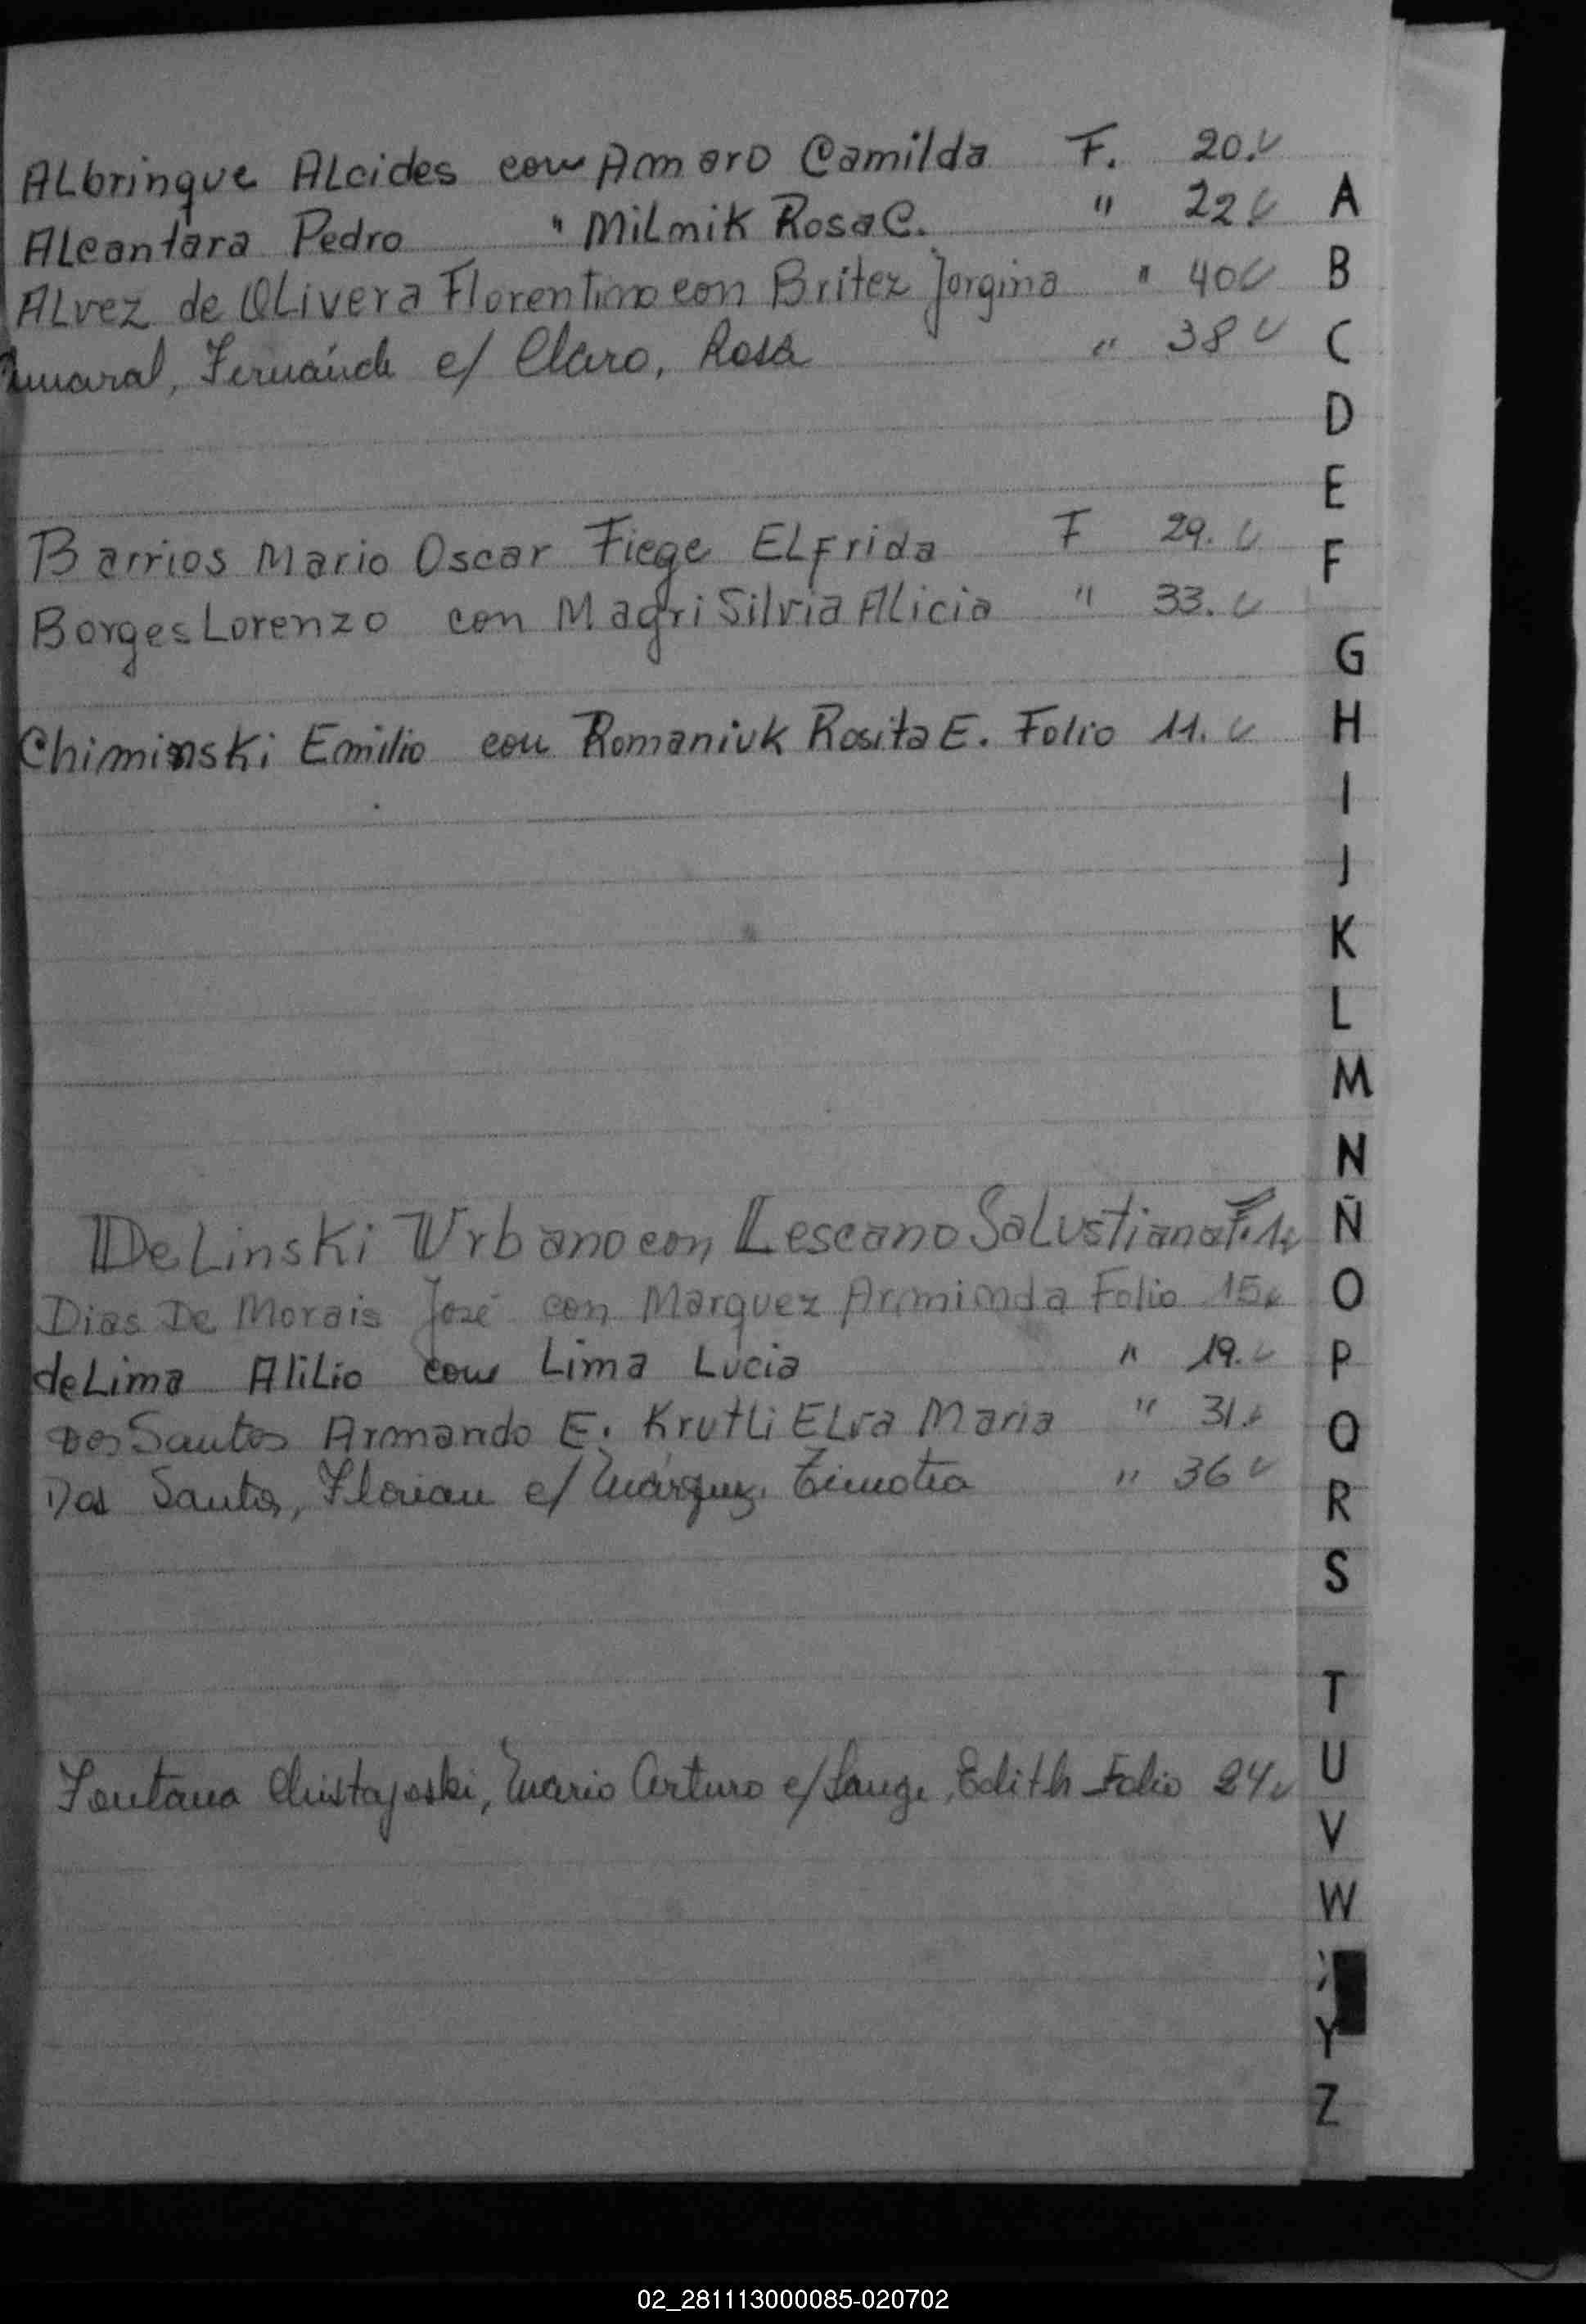 ALbrinque ALcides con Amaro Camilda F. 20.
ALcantara Pedro " MiLnik Rosa C. " 22
ALvez de OLivera Florentino con Britez Jorgina " 40
Amaral, Fernández c/ Claro, Rosa " 38
Barrios Mario Oscar Fiege ELFrida F 29.
Borges Lorenzo con Magri Silvia ALicia " 33.
Chiminski Emilio con Romaniuk Rosita E. Folio 11.
DeLinski Urbano con Lescano SaLustiana F.
Dias De Morais José con Marquez Arminda Folio 15
de Lima AtiLio con Lima Lucia " 19.
Dos Santos Armando E. KrutLi ELva Maria " 31.
Dos Santos, Florian c/ Márquez, Timotea " 36
Fontana Mario Arturo c/ Lange, Edith Folio 24
A
B
C
D
E
F
G
H
I
J
K
L
M
N
Ñ
O
P
Q
R
S
T
U
V
W
Y
Z
02_281113000085-020702